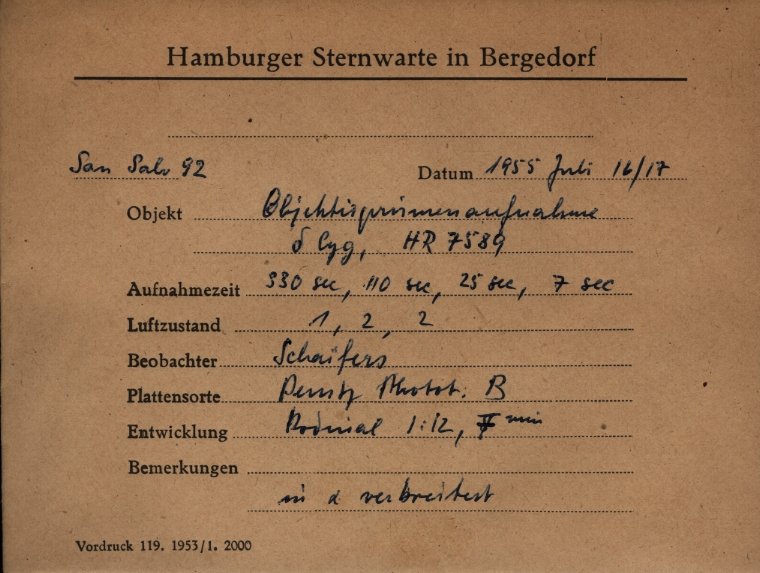 Hamburger Sternwarte in Bergedorf
San Salv 92 Datum 1955 Juli 16/17
Objekt Objektivprismenaufnahme
δ Cyg, HR 7589
Aufnahmezeit 330 sec, 110 sec, 25 sec, 7 sec
Luftzustand 1, 2, 2
Beobachter Schaifers
Plattensorte Perutz B
Entwicklung Rodinal 1:12, min
Bemerkungen
in α verbreitert
Vordruck 119. 1953/1. 2000